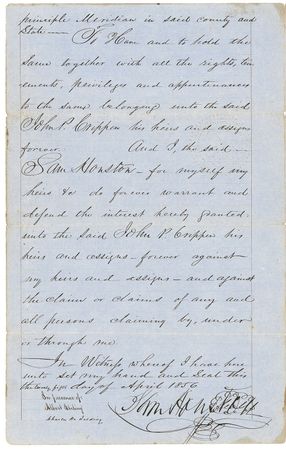 principle Meridian in said county and
State —
To Have and to hold the
Same together with all the rights, ten
ements, priviliges and appertenances
to the same belonging unto the said
John P. Crippen his heirs and assigns
forever. And I, the said —
Sam Houston — for myself my
heirs &c do forever warrant and
defend the interest hereby granted
unto the Said John P. Crippen his
heirs and assigns — forever against
my heirs and assigns — and against
the claim or claims of any and
all persons claiming by, under
or through me.
In Witness whereof I have here
unto set my hand and Seal this
day of April 1856
In presence of
Sam Houston